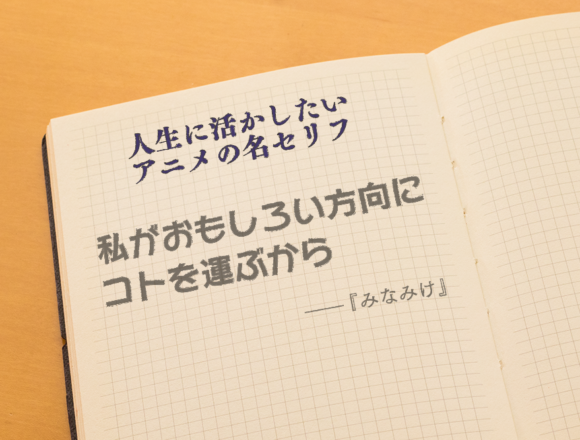 人生に活かしたい
アニメの名セリフ
私がおもしろい方向に
コトを運ぶから
――『みなみけ』